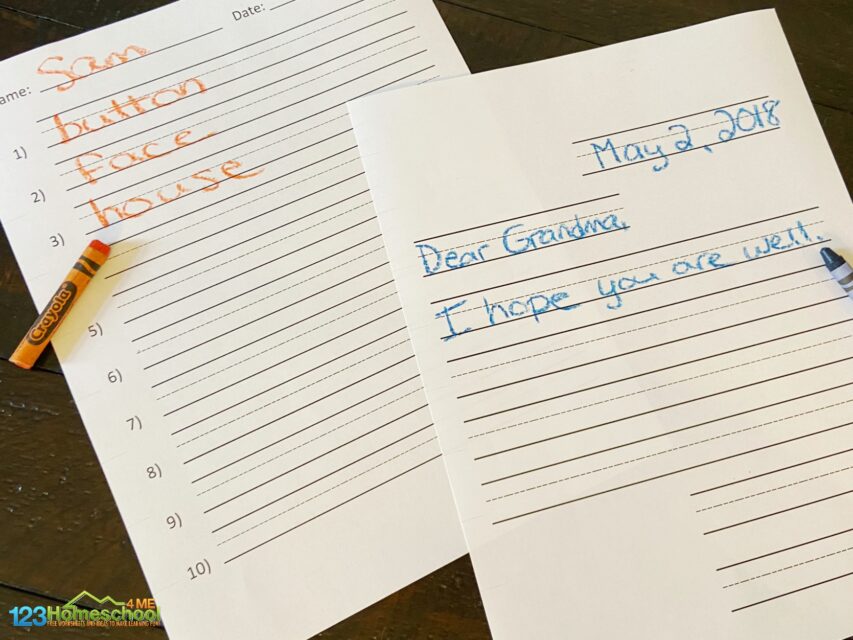 Name: Sam Date:
1) button
2) face
3) house
5)
6)
7)
8)
9)
10)
Crayola
May 2, 2018
Dear Grandma,
I hope you are well.
123 Homeschool 4 ME
FREE WORKSHEETS AND IDEAS TO MAKE LEARNING FUN